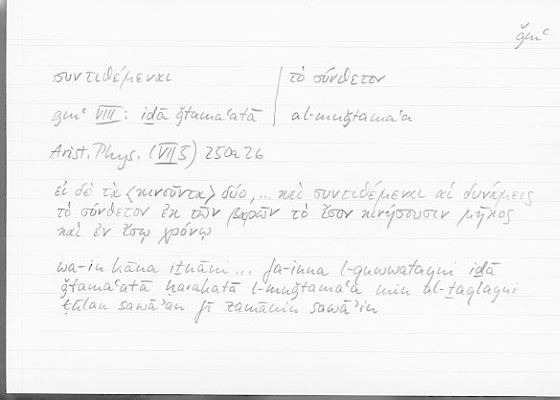 ǧmʿ
συντιθέμεναι | τὸ σύνθετον
ǧmʿ VIII: iḏā ǧtamaʿatā | al-muǧtamaʿa
Arist. Phys. (VII 5) 250a 26
εἰ δὲ τὰ <κινοῦντα> δύο, ... καὶ συντιθέμεναι αἱ δυνάμεις
τὸ σύνθετον ἐκ τῶν βαρῶν τὸ ἴσον κινήσουσιν μῆκος
καὶ ἐν ἴσῳ χρόνῳ
wa-in kāna iṯnāni ... fa-inna l-quwwatayni iḏā
ǧtamaʿatā ḥarrakatā l-muǧtamaʿa min al-ṯaqlayni
ṭūlan sawāʾan fī zamānin sawāʾin